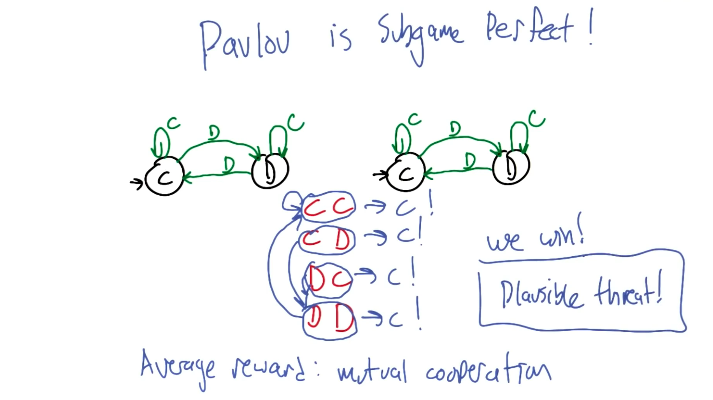 Pavlov is Subgame Perfect!
C D C C D C
D D
C D C D
C C → C!
C D → C!
we win!
D C → C!
Plausible threat!
D D → C!
Average reward: mutual cooperation